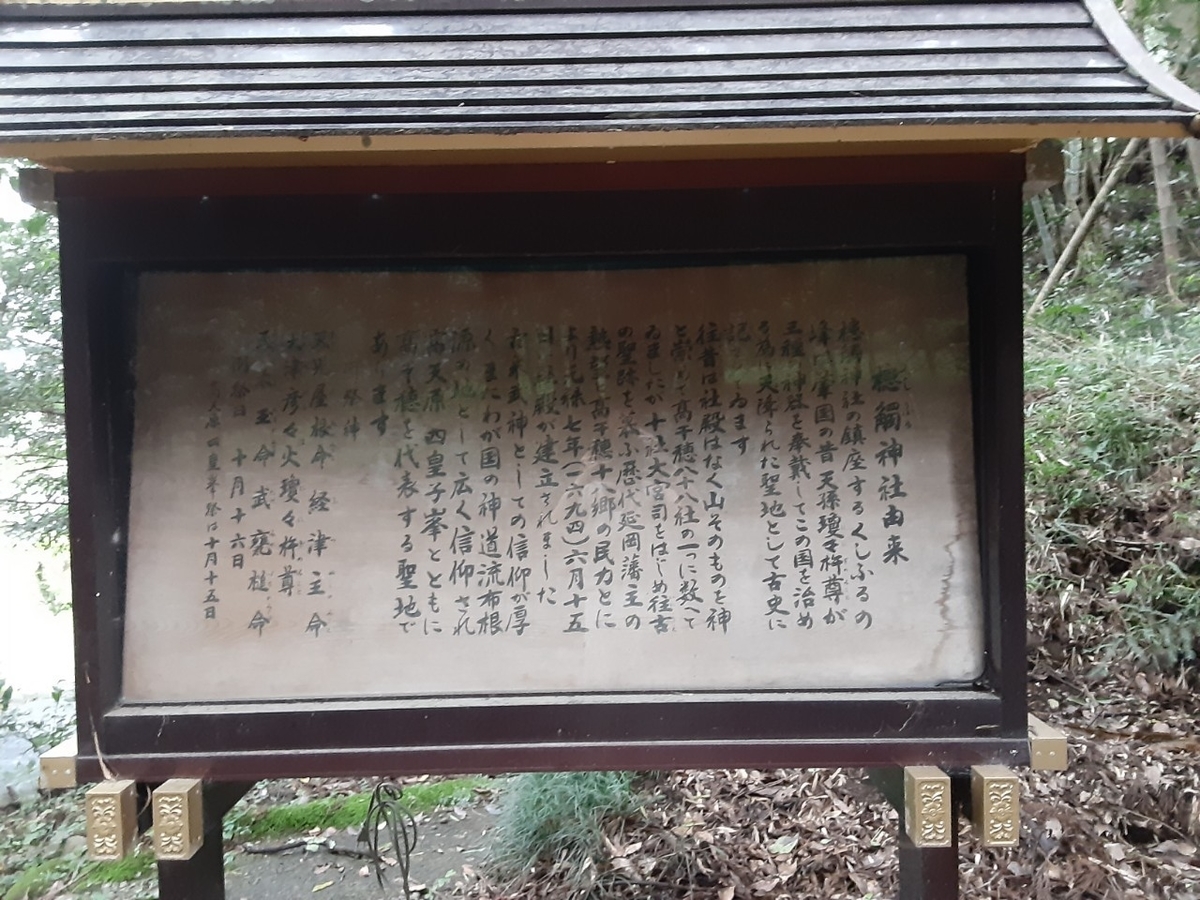 槵觸神社由来
槵觸神社の鎮座するくしふるの
峰は肇国の昔天孫瓊々杵尊が
三種神器を奉戴してこの国を治め
る為に天降られた聖地として古史に
記してゐます
往昔は社殿はなく山そのものを神
と崇して高千穂八十八社の一つに数へて
ゐましたが十社大宮司をはじめ往古
の聖跡を慕ふ歴代延岡藩主の
熱祷と高千穂十八郷の民力とに
より元禄七年(一六九四)六月十五
日 殿が建立されました
武神としての信仰が厚
くまたわが国の神道流布根
源の地として広く信仰され
高天原四皇子峯とともに
高千穂を代表する聖地で
あります
祭神
天児屋根命 経津主命
天津彦々火瓊々杵尊
天太玉命 武甕槌命
例祭日 十月十六日
四皇峯祭は十月十五日